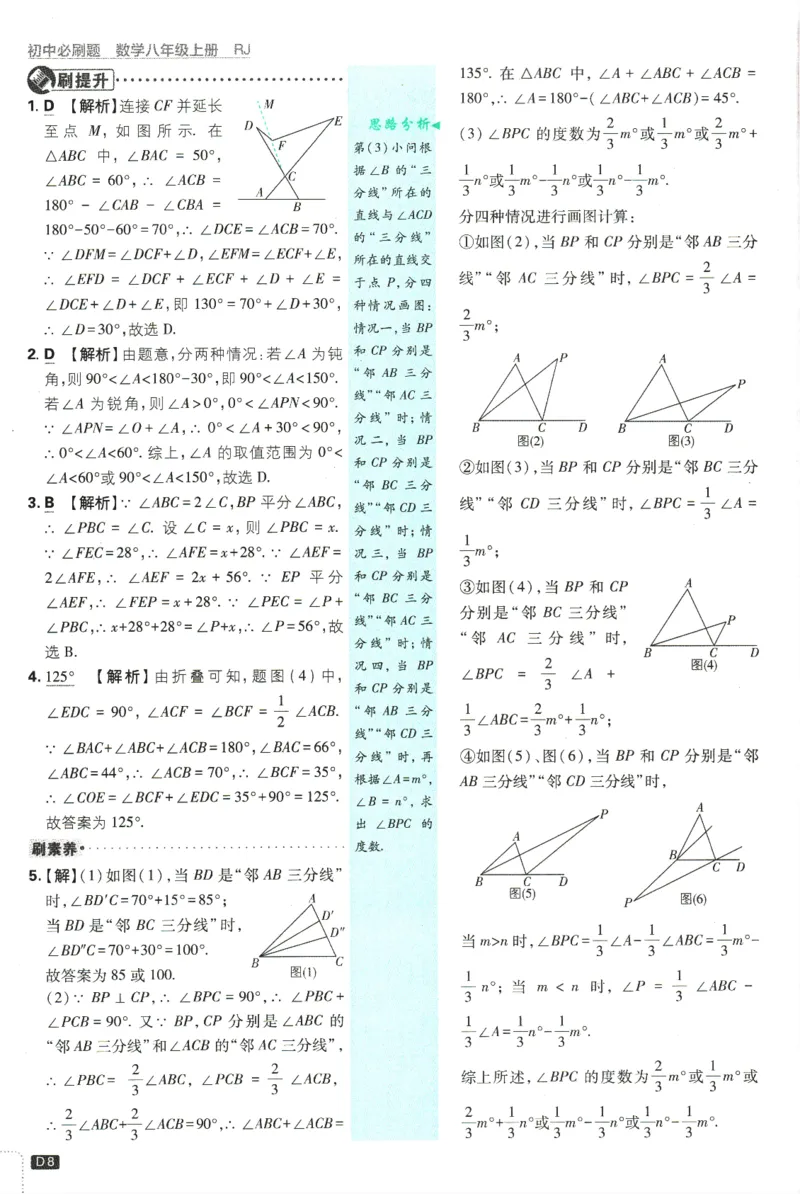 初中必刷题 数学八年级上册 RJ
刷提升
1. D 【解析】连接 CF 并延长
至点 M, 如图所示. 在
△ABC 中, ∠BAC = 50°,
∠ABC = 60°, ∴ ∠ACB =
180° - ∠CAB - ∠CBA =
180°-50°-60°=70°,∴ ∠DCE=∠ACB=70°.
∵ ∠DFM=∠DCF+∠D, ∠EFM=∠ECF+∠E,
∴ ∠EFD = ∠DCF + ∠ECF + ∠D + ∠E =
∠DCE+∠D+∠E, 即 130°=70°+∠D+30°,
∴ ∠D=30°,故选 D.
M
D
E
F
C
A
B
2. D 【解析】由题意,分两种情况:若∠A 为钝
角,则 90°<∠A<180°-30°,即 90°<∠A<150°.
若∠A 为锐角,则∠A>0°,0°<∠APN<90°.
∵ ∠APN=∠O+∠A,∴ 0°<∠A+30°<90°,
∴0°<∠A<60°. 综上,∠A 的取值范围为 0°<
∠A<60°或 90°<∠A<150°,故选 D.
3. B 【解析】∵ ∠ABC=2∠C,BP 平分∠ABC,
∴ ∠PBC = ∠C. 设 ∠C = x, 则 ∠PBC = x.
∵ ∠FEC=28°,∴ ∠AFE=x+28°. ∵ ∠AEF=
2∠AFE,∴ ∠AEF = 2x + 56°. ∵ EP 平分
∠AEF,∴ ∠FEP=x+28°. ∵ ∠PEC=∠P+
∠PBC,∴ x+28°+28°=∠P+x,∴ ∠P=56°,故
选 B.
4. 125° 【解析】由折叠可知,题图(4)中,
∠EDC = 90°, ∠ACF = ∠BCF = 1/2 ∠ACB.
∵ ∠BAC+∠ABC+∠ACB=180°,∠BAC=66°,
∠ABC=44°,∴ ∠ACB=70°,∴ ∠BCF=35°,
∴ ∠COE=∠BCF+∠EDC=35°+90°=125°.
故答案为 125°.
刷素养
5.【解】(1)如图(1),当 BD 是“邻 AB 三分线”
时,∠BD′C=70°+15°=85°;
当 BD 是“邻 BC 三分线”时,
∠BD″C=70°+30°=100°.
故答案为 85 或 100.
A
D′
D″
B
C
图(1)
(2)∵ BP⊥CP,∴ ∠BPC=90°,∴ ∠PBC+
∠PCB=90°. 又∵ BP, CP 分别是∠ABC 的
“邻 AB 三分线”和∠ACB 的“邻 AC 三分线”,
∴ ∠PBC= 2/3 ∠ABC, ∠PCB = 2/3 ∠ACB,
∴ 2/3 ∠ABC+ 2/3 ∠ACB=90°,∴ ∠ABC+∠ACB=
D8
思路分析
第(3)小问根
据∠B 的“三
分线”所在的
直线与∠ACD
的“三分线”
所在的直线交
于点 P,分四
种情况画图:
情况一,当 BP
和 CP 分别是
“邻 AB 三分
线”“邻 AC 三
分线”时;情
况二,当 BP
和 CP 分别是
“邻 BC 三分
线”“邻 CD 三
分线”时;情
况三,当 BP
和 CP 分别是
“邻 BC 三分
线”“邻 AC 三
分线”时;情
况四,当 BP
和 CP 分别是
“邻 AB 三分
线”“邻 CD 三
分线”时,再
根据∠A=m°,
∠B=n°,求
出 ∠BPC 的
度数.
135°. 在 △ABC 中, ∠A + ∠ABC + ∠ACB =
180°,∴ ∠A=180°-(∠ABC+∠ACB)=45°.
(3) ∠BPC 的度数为 2/3 m°或 1/3 m°或 2/3 m°+
1/3 n°或 1/3 m°- 1/3 n°或 1/3 n°- 1/3 m°.
分四种情况进行画图计算:
①如图(2),当 BP 和 CP 分别是“邻 AB 三分
线”“邻 AC 三分线”时, ∠BPC = 2/3 ∠A =
2/3 m°;
A
P
B
C
D
图(2)
A
P
B
C
D
图(3)
②如图(3),当 BP 和 CP 分别是“邻 BC 三分
线”“邻 CD 三分线”时, ∠BPC = 1/3 ∠A =
1/3 m°;
③如图(4),当 BP 和 CP
分别是“邻 BC 三分线”
“邻 AC 三分线”时,
∠BPC = 2/3 ∠A +
1/3 ∠ABC= 2/3 m°+ 1/3 n°;
A
P
B
C
D
图(4)
④如图(5)、图(6),当 BP 和 CP 分别是“邻
AB 三分线”“邻 CD 三分线”时,
A
P
B
C
D
图(5)
A
B
C
D
P
图(6)
当 m>n 时,∠BPC= 1/3 ∠A- 1/3 ∠ABC= 1/3 m°-
1/3 n°; 当 m < n 时, ∠P = 1/3 ∠ABC -
1/3 ∠A= 1/3 n°- 1/3 m°.
综上所述,∠BPC 的度数为 2/3 m°或 1/3 m°或
2/3 m°+ 1/3 n°或 1/3 m°- 1/3 n°或 1/3 n°- 1/3 m°.